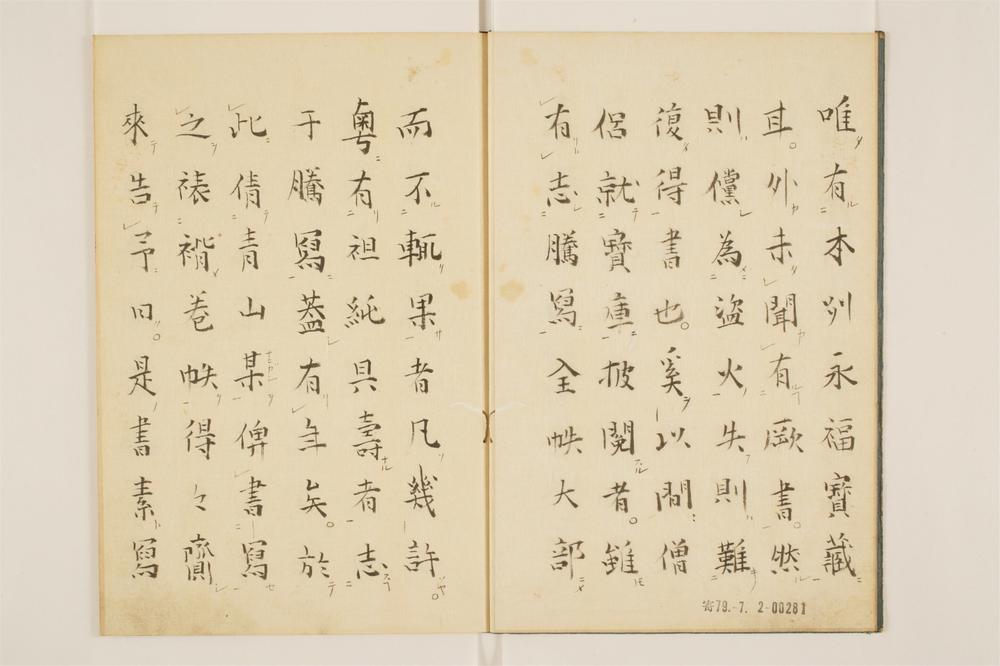 唯有本刋永福寶藏
耳。外未聞有厥書。然
則儻為盜火失則難
復得書也。奚以間僧
侶就寶庫披閱者。雖
有志騰寫全帙大部
而不輒果者凡幾許。
粵有祖純具壽者志
于騰寫蓋有年矣。於
此倩青山某俾書寫
之裱褙卷帙得々齎
來告予曰。是書素寫
寄79.-7. 2-00281